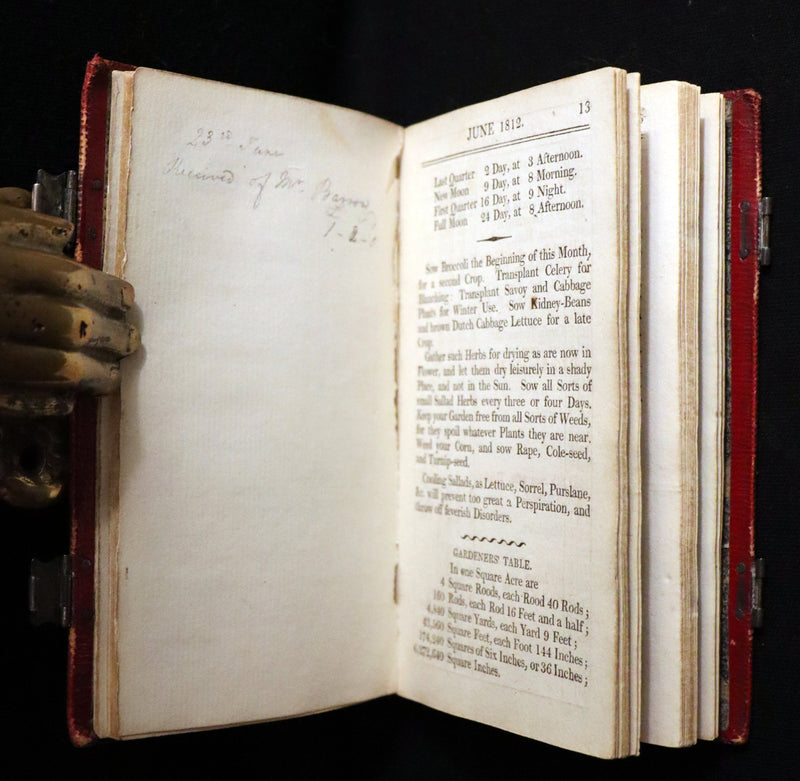 23rd June
Received of Mr. Barron
£
1-2-0
JUNE 1812. 13
Last Quarter 2 Day, at 3 Afternoon.
New Moon 9 Day, at 8 Morning.
First Quarter 16 Day, at 9 Night.
Full Moon 24 Day, at 8 Afternoon.
Sow Broccoli the Beginning of this Month,
for a second Crop. Transplant Celery for
Blanching: Transplant Savoy and Cabbage
Plants for Winter Use. Sow Kidney-Beans
and brown Dutch Cabbage Lettuce for a late
Crop.
Gather such Herbs for drying as are now in
Flower, and let them dry leisurely in a shady
Place, and not in the Sun. Sow all Sorts of
small Sallad Herbs every three or four Days.
Keep your Garden free from all Sorts of Weeds,
for they spoil whatever Plants they are near.
Weed your Corn, and sow Rape, Cole-seed,
and Turnip-seed.
Cooling Sallads, as Lettuce, Sorrel, Purslane,
&c. will prevent too great a Perspiration, and
throw off feverish Disorders.
GARDENERS' TABLE.
In one Square Acre are
4 Square Roods, each Rood 40 Rods;
160 Rods, each Rod 16 Feet and a half;
4,840 Square Yards, each Yard 9 Feet;
43,560 Square Feet, each Foot 144 Inches;
174,240 Squares of Six Inches, or 36 Inches;
6,272,640 Square Inches.